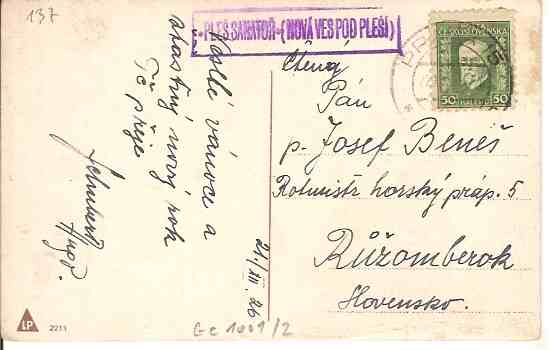 137
PLEŠ SANATOŘ-(NOVÁ VES POD PLEŠÍ)
ČESKOSLOVENSKÁ
50 50
Veselé vánoce a
šťastný nový rok
Tě přeje
Hugo.
21./XII. 26
Ctěný
Pán
p. Josef Beneš
Rotmistr horský práp. 5
Růžomberok
Slovensko.
LP 2211
Gc 1001/2